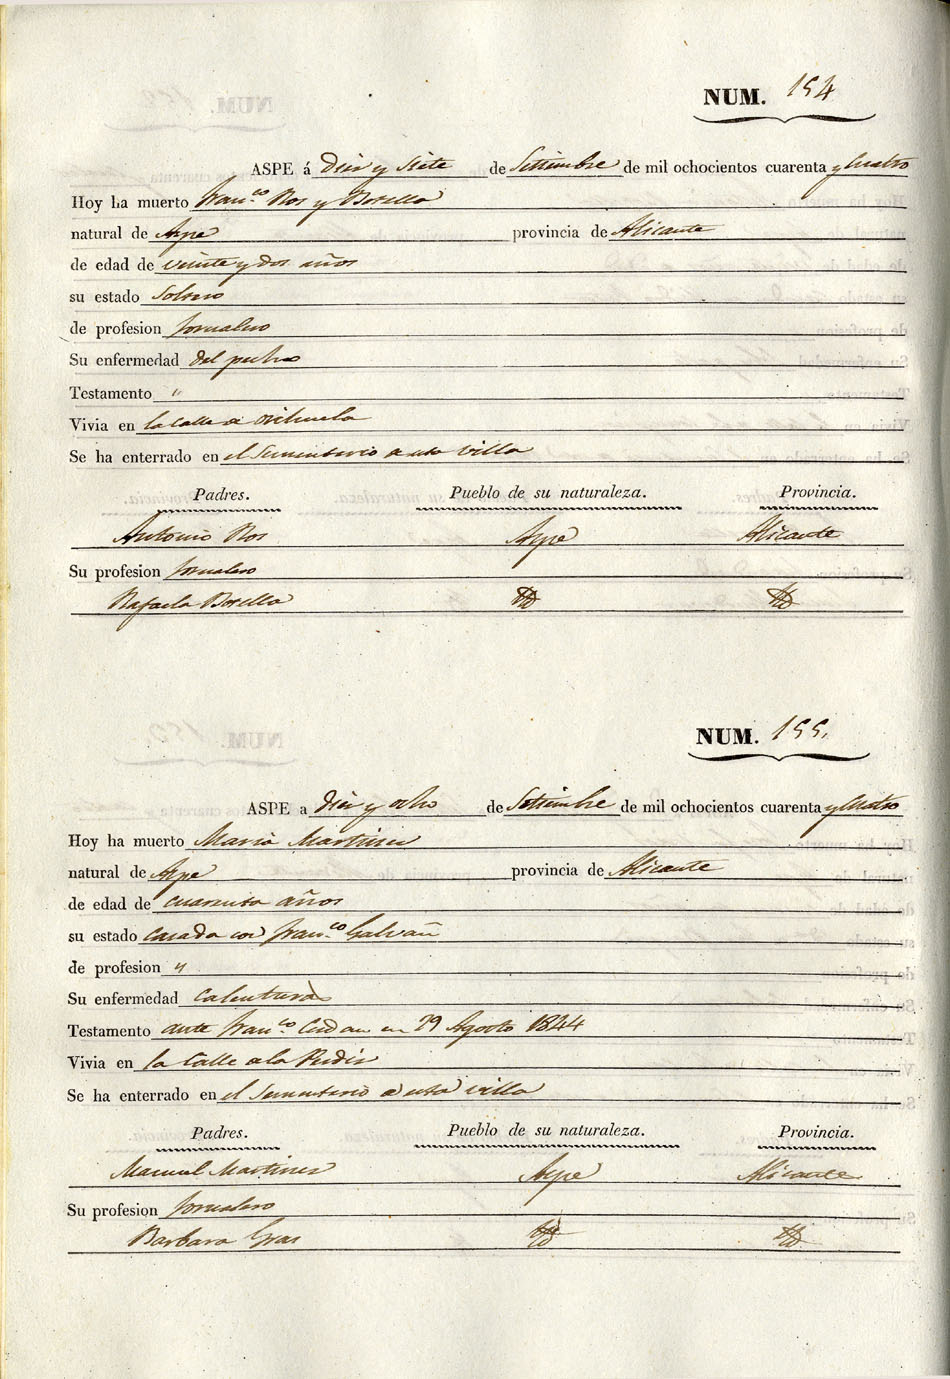 NUM. 154
ASPE á Diez y Siete de Setiembre de mil ochocientos cuarenta y Cuatro
Hoy ha muerto Fran.co Ros y Botella
natural de Aspe provincia de Alicante
de edad de veinte y dos años
su estado Soltero
de profesion Jornalero
Su enfermedad del pecho
Testamento "
Vivia en la Calle de Orihuela
Se ha enterrado en el Sementerio de esta Villa
Padres. Pueblo de su naturaleza. Provincia.
Antonio Ros Aspe Alicante
Su profesion Jornalero
Rafaela Botella Yd Yd
NUM. 155.
ASPE a Diez y ocho de Setiembre de mil ochocientos cuarenta y Cuatro
Hoy ha muerto Maria Martinez
natural de Aspe provincia de Alicante
de edad de cuarenta años
su estado casada con Fran.co Galvañ
de profesion "
Su enfermedad Calenturas
Testamento ante Fran.co en 29 Agosto 1844
Vivia en la Calle de la
Se ha enterrado en el Sementerio de esta villa
Padres. Pueblo de su naturaleza. Provincia.
Manuel Martinez Aspe Alicante
Su profesion Jornalero
Barbara Gras Yd Yd